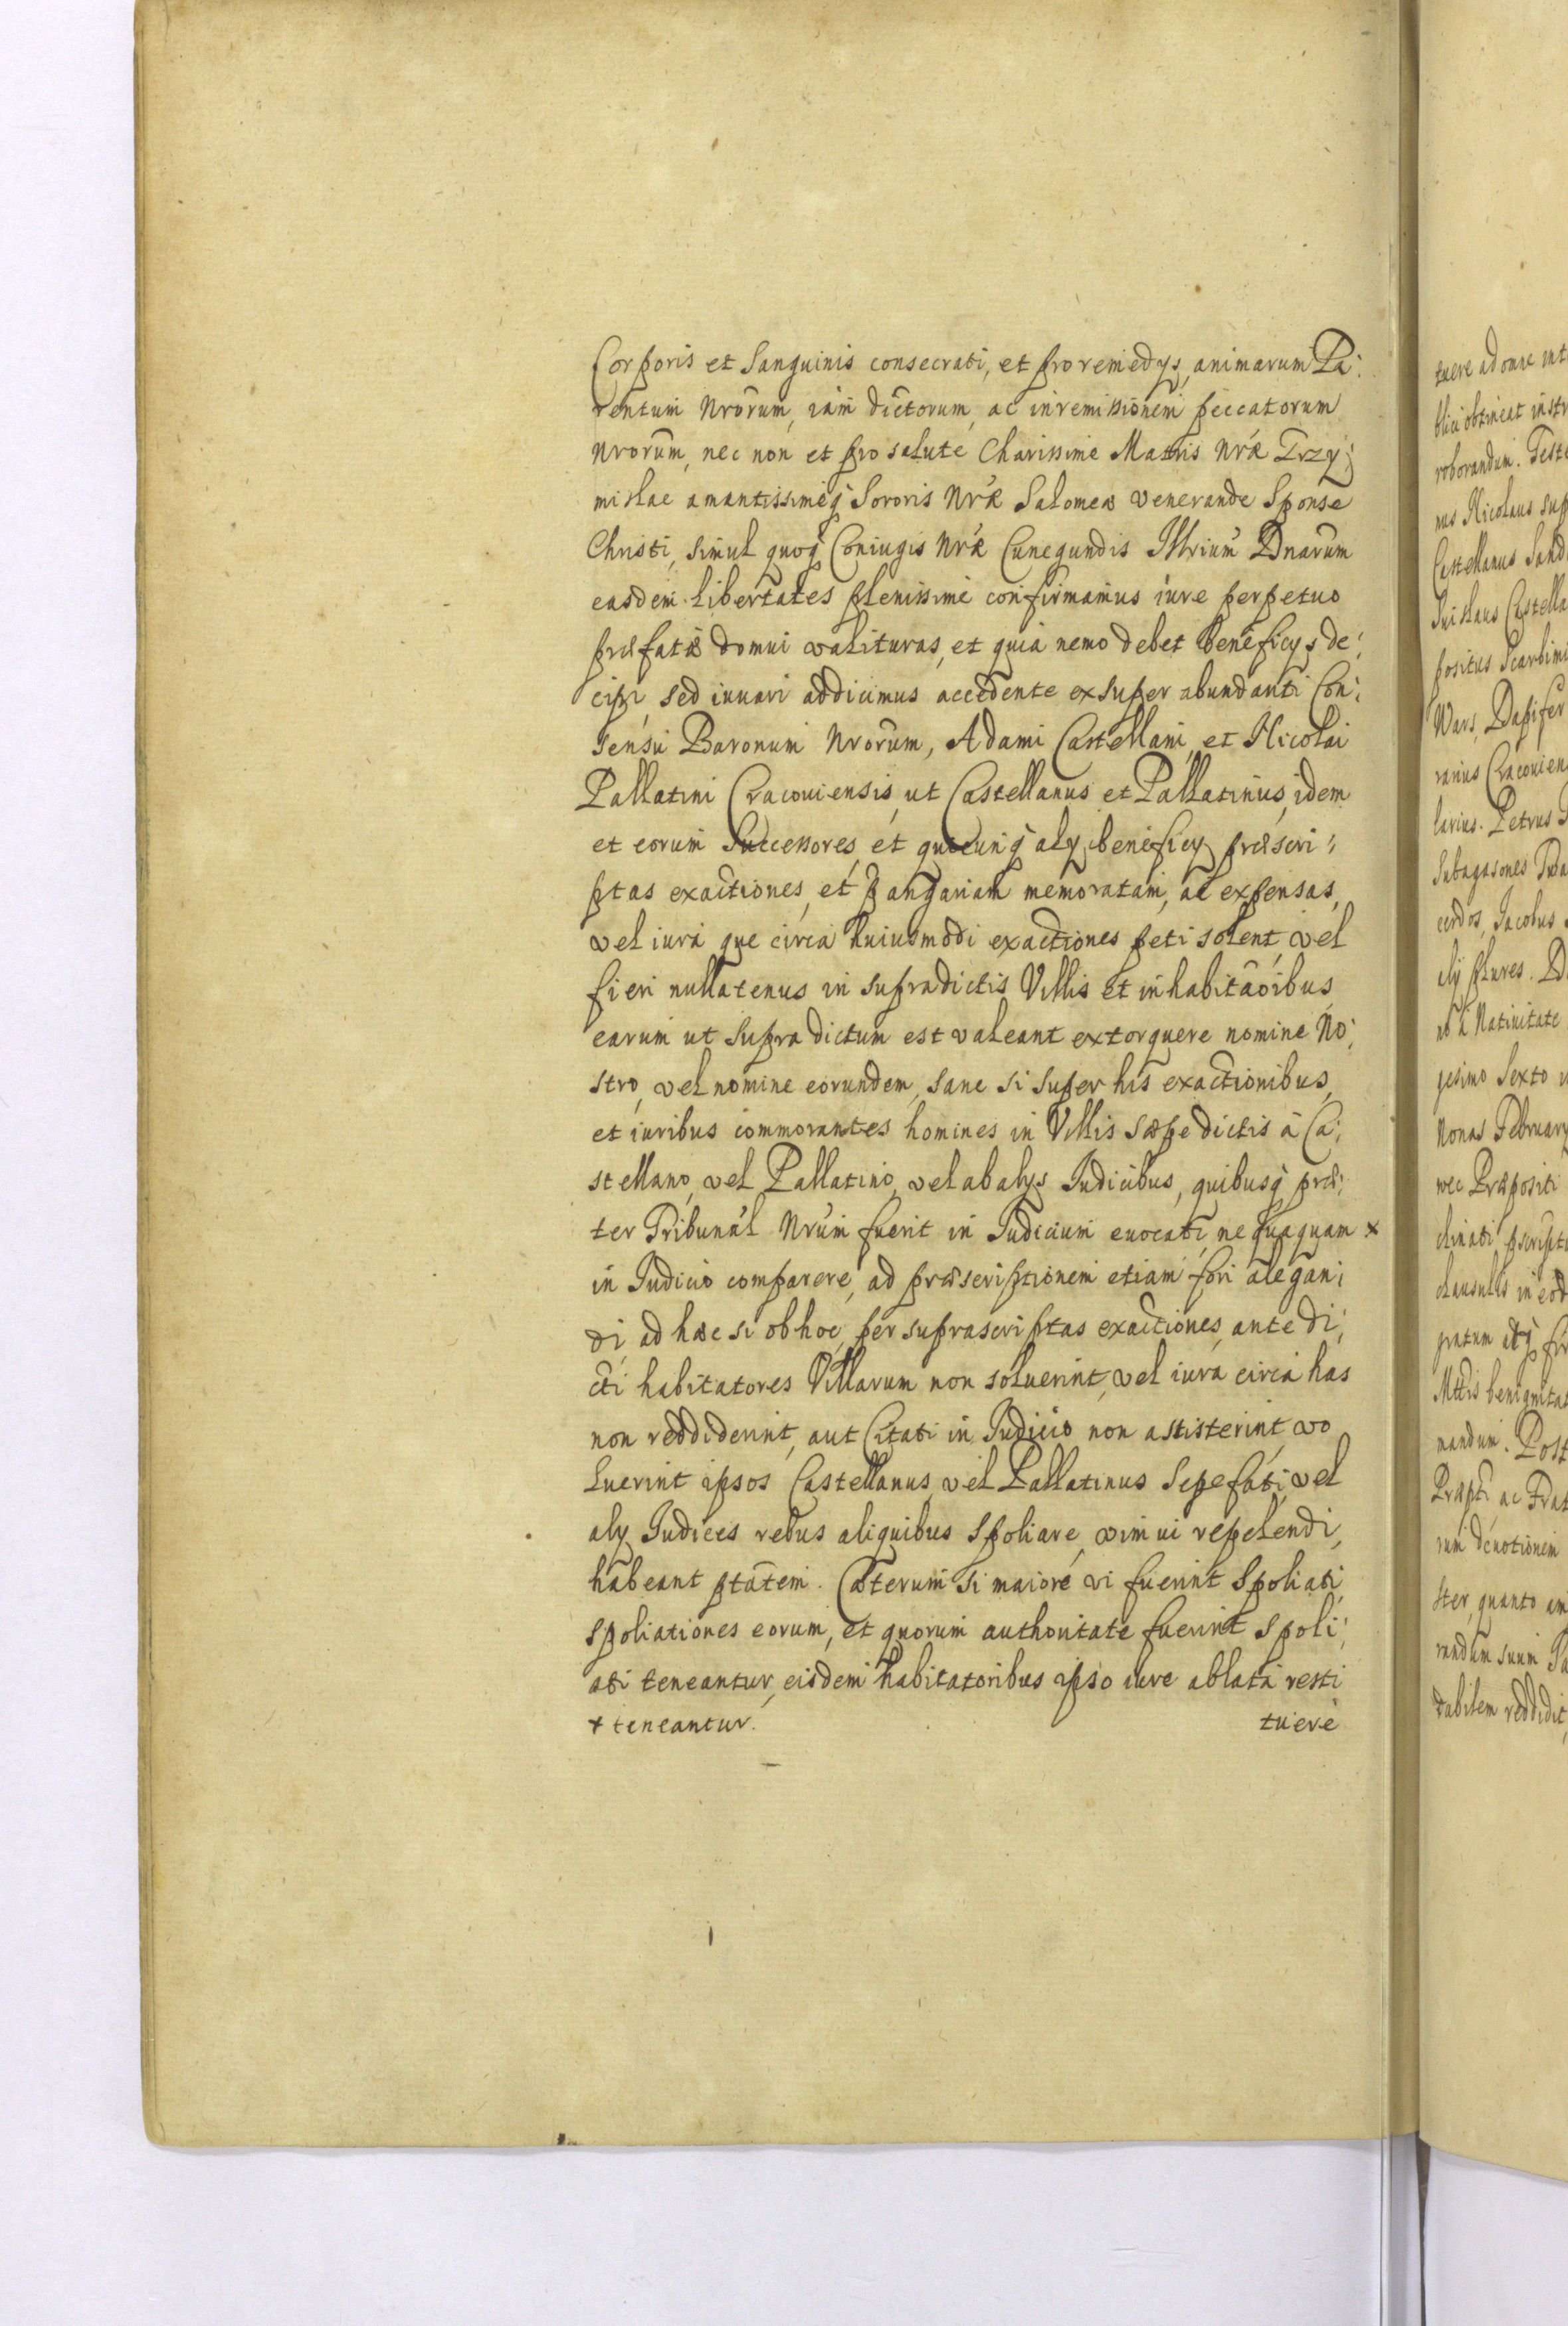 Corporis et Sanguinis consecrati, et pro remedys, animarum Pa:
rentum Nrorum, iam dictorum, ac in remissionem peccatorum
Nrorum, nec non et pro salute Charissime Matris Nræ Trzy:
mislae amantissimeq Sororis Nræ Salomeæ venerande Sponse
Christi, simul quoq Coniugis Nræ Cunegundis Illrium Dnarum
easdem libertates plenissime confirmamus iure perpetuo
præfatæ domui valituras, et quia nemo debet beneficys de:
cipi, sed iuuari addicimus accedente ex super abundanti Con:
sensu Baronum Nrorum, Adami Castellani, et Nicolai
Pallatini Cracouiensis, ut Castellanus et Pallatinus, idem
et eorum Successores, et quicunq aly beneficy præscri:
ptas exactiones, et pangariam memoratam, ac expensas,
vel iura que circa huiusmodi exactiones peti solent, vel
fieri nullatenus in supradictis Villis et inhabitaoribus
earum ut supra dictum est valeant extorquere nomine No:
stro, vel nomine eorundem, sane si super his exactionibus,
et iuribus commorantes homines in Villis sæpe dictis à Ca:
stellano, vel Pallatino, vel ab alys Iudicibus, quibusq præ:
ter Tribunal Nrum fuerit in Iudicium euocati, nequaquam x
in Iudicio comparere, ad præscriptionem etiam fori alegan:
di, ad hæc si ob hoc, per suprascriptas exactiones, ante di:
cti habitatores Villarum non soluerint, vel iura circa has
non reddiderint, aut Citati in Iudicio non astisterint, vo
luerint ipsos Castellanus, vel Pallatinus Sepefati, vel
aly Iudices rebus aliquibus spoliare, vim vi repelendi,
habeant ptatem. Cæterum si maiore vi fuerint Spoliati,
spoliationes eorum, et quorum authoritate fuerint spoli:
ati teneantur, eisdem habitatoribus ipso iure ablata resti
x teneantur. tuere
tuere ad omne
blici obtineat
roborandum.
nus Nicolaus
Castellanus
Castella
positus
Dapifer
ranius Cracouien
larius. Petrus
Subagasones
Iacobus
plures.
Natiuitate
gesimo Sexto
Nonas February
Præpositi
clausulis in
benignitas
nandum. Post
ac
deuotionem
ster, quanto
suum
dabilem reddidit,